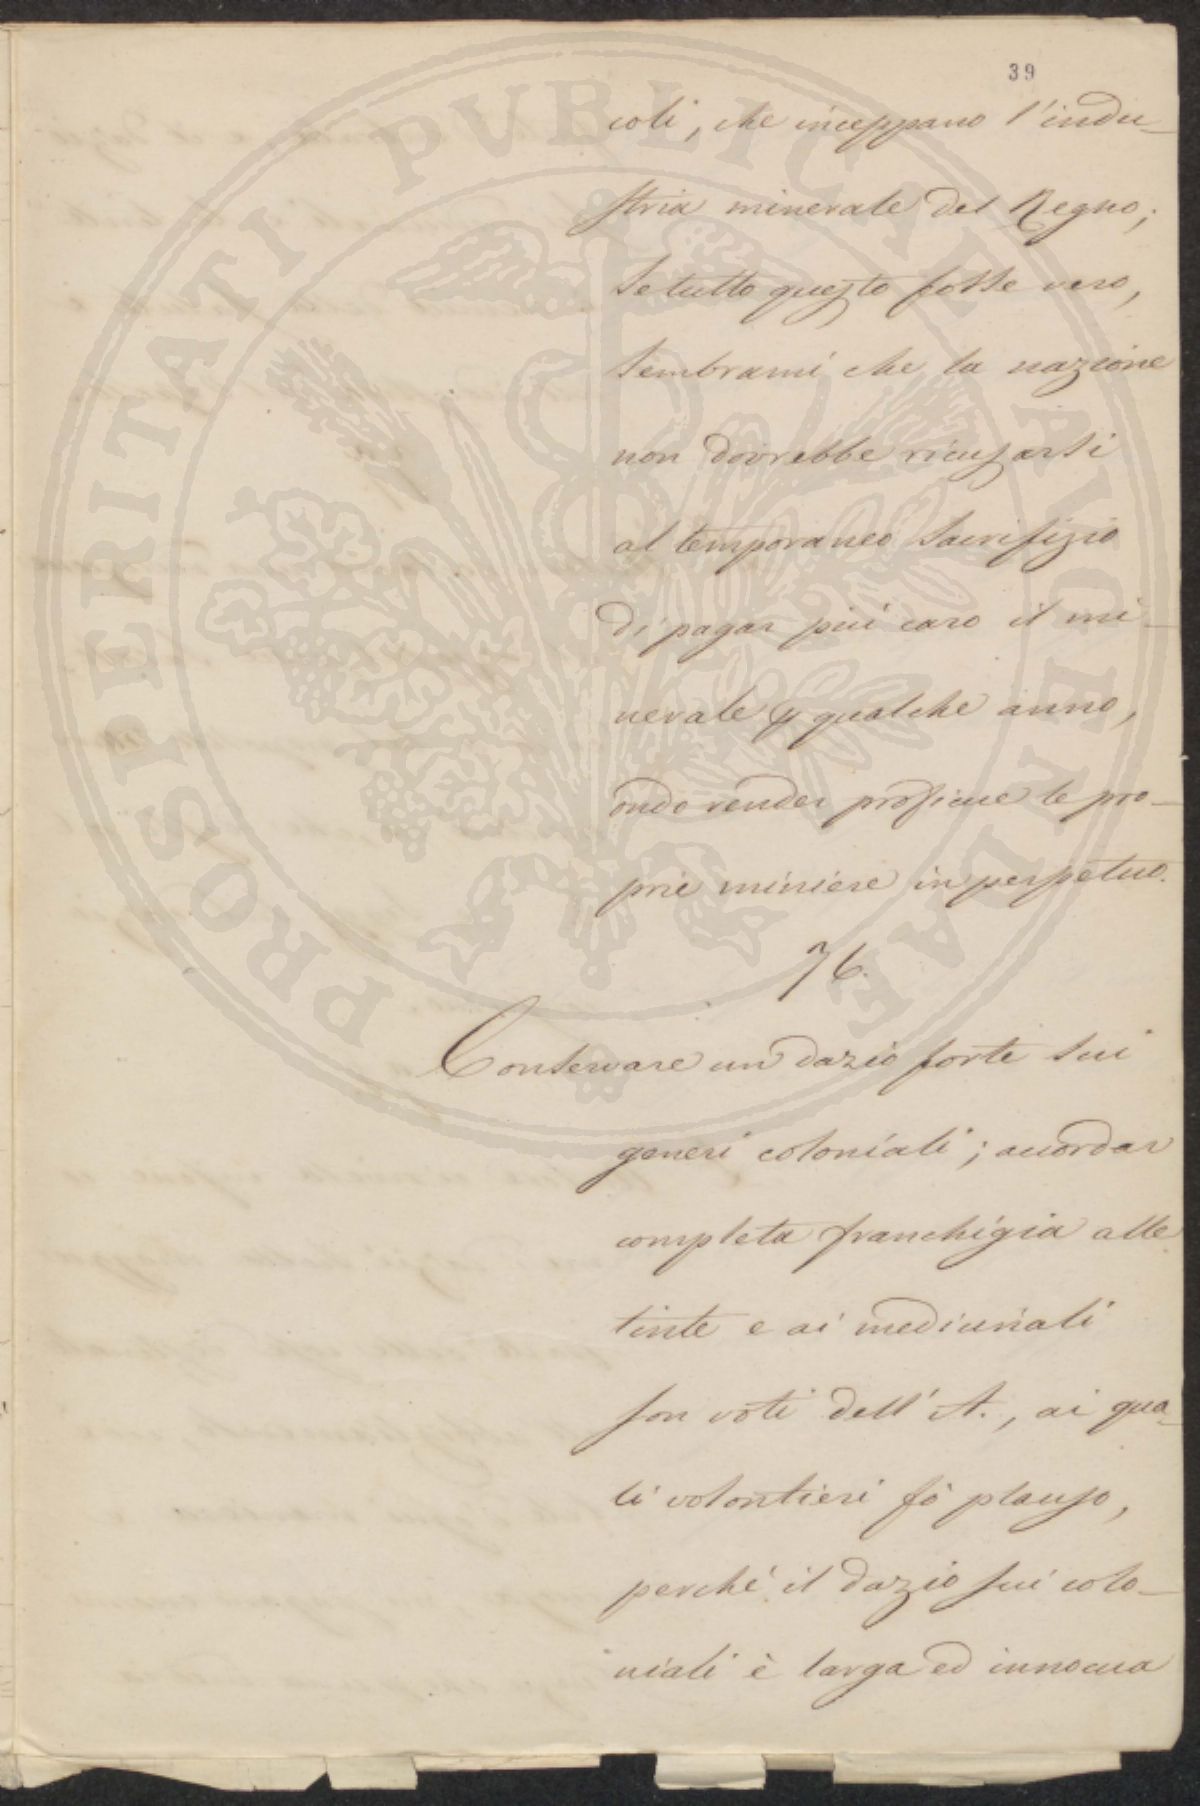 39
coli, che inceppano l'indu-
stria minerale del Regno;
se tutto questo fosse vero,
sembrami che la nazione
non dovrebbe ricusarsi
al temporaneo sacrifizio
di pagar più caro il mi-
nerale p qualche anno,
onde render proficue le pro-
prie miniere in perpetuo.
76.
Conservare un dazio forte sui
generi coloniali; accordar
completa franchigia alle
tinte e ai medicinali
son voti dell'A., ai qua-
li volontieri fò plauso,
perchè il dazio sui colo-
niali è larga ed innocua
PROSPERITATI PUBLICAE AUGENDAE